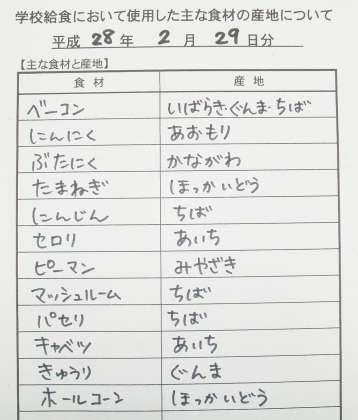 学校給食において使用した主な食材の産地について
平成 28 年 2 月 29 日分
【主な食材と産地】
食材 産地
ベーコン いばらき・ぐんま・ちば
にんにく あおもり
ぶたにく かながわ
たまねぎ ほっかいどう
にんじん ちば
セロリ あいち
ピーマン みやざき
マッシュルーム ちば
パセリ ちば
キャベツ あいち
きゅうり ぐんま
ホールコーン ほっかいどう